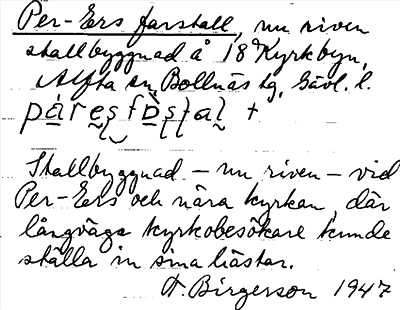 Per-Ers farstall, nu riven
stallbyggnad å 18 Kyrkbyn,
Alfta sn, Bollnäs tg, Gävl. l.
Stallbyggnad – nu riven – vid
Per-Ers och nära kyrkan, där
långväga kyrkobesökare kunde
ställa in sina hästar.
H. Birgerson 1947